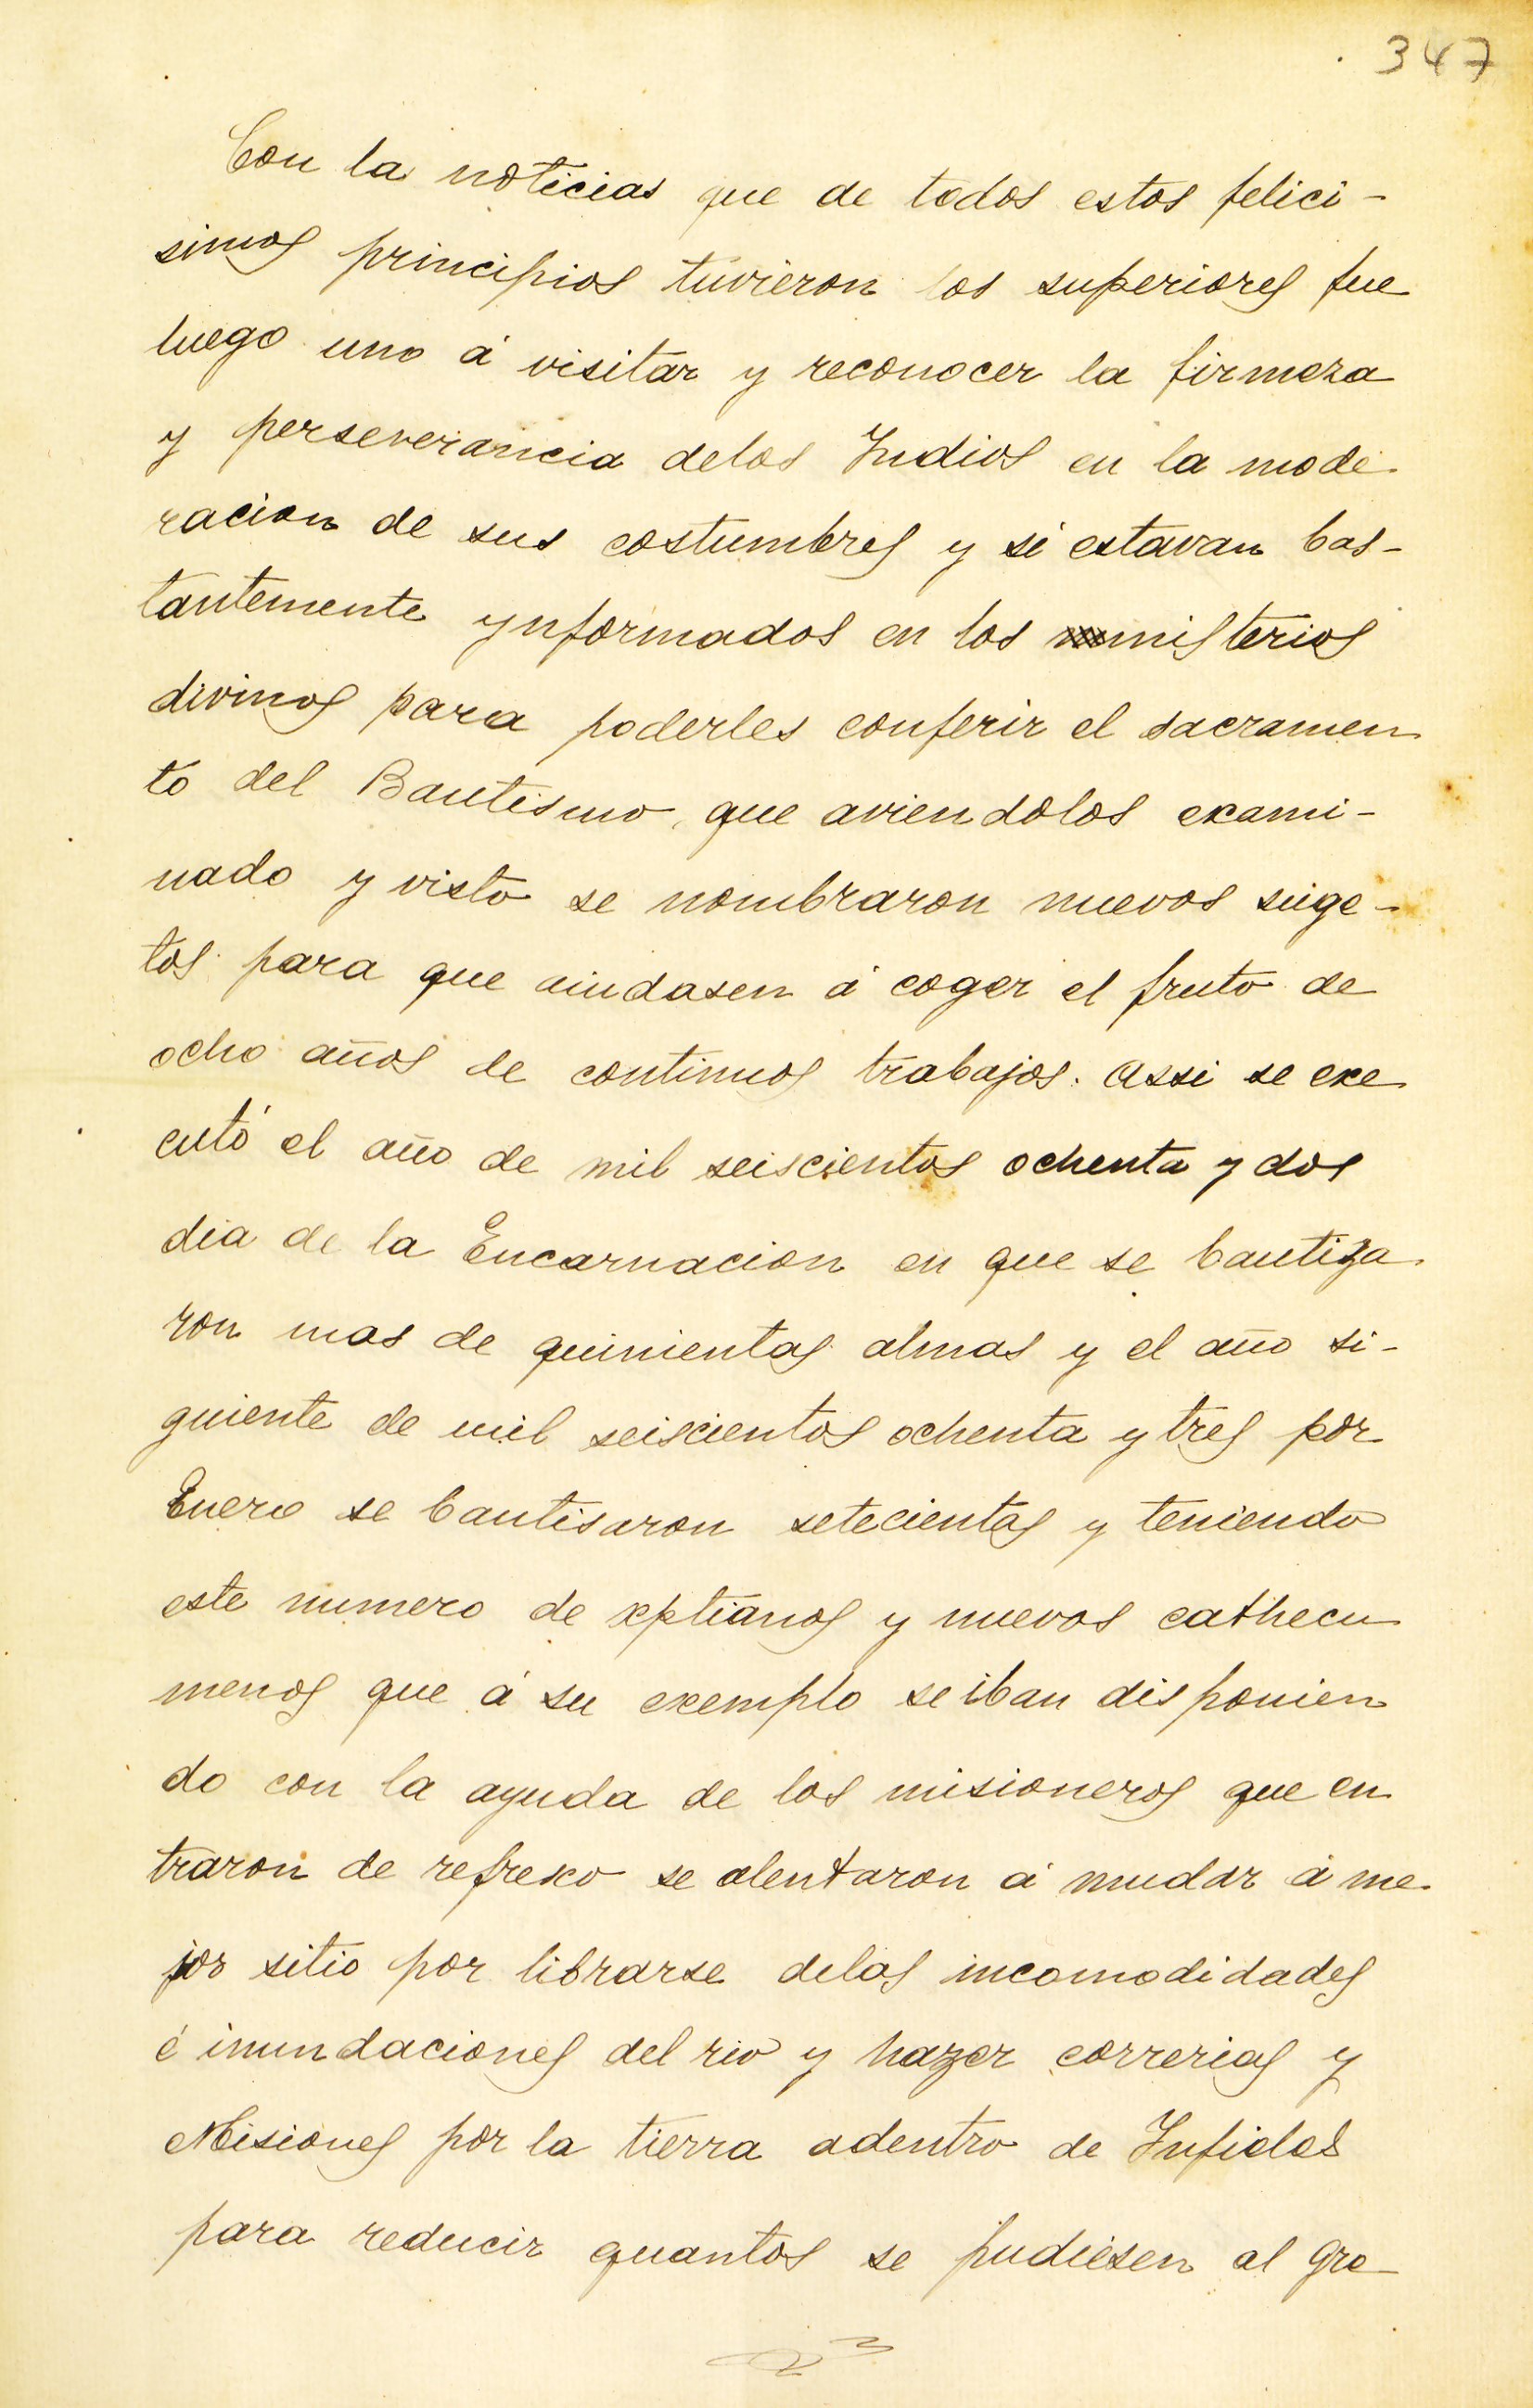 347
Con la noticias que de todos estos felici-
simos principios tuvieron los superiores fue
luego uno á visitar y reconocer la firmeza
y perseverancia delos Indios en la mode
racion de sus costumbres y si estavan bas-
tantemente ynformados en los misterios
divinos para poderles conferir el sacramen
to del Bautismo, que aviendolos exami-
nado y visto se nombraron nuevos suge-
tos para que aiudasen á coger el fruto de
ocho años de continuos trabajos. Assi se exe
cutó el año de mil seiscientos ochenta y dos
dia de la Encarnacion en que se bautiza
ron mas de quinientas almas y el año si-
guiente de mil seiscientos ochenta y tres por
Enero se bautisaron setecientas y teniendo
este numero de xptianos y nuevos cathecu
menos que á su exemplo se iban disponien
do con la ayuda de los misioneros que en
traron de refresco se alentaron á mudar á me
jor sitio por librarse delas incomodidades
é inundaciones del rio y hazer correrias y
Misiones por la tierra adentro de Infieles
para reducir quantos se pudiesen al gre